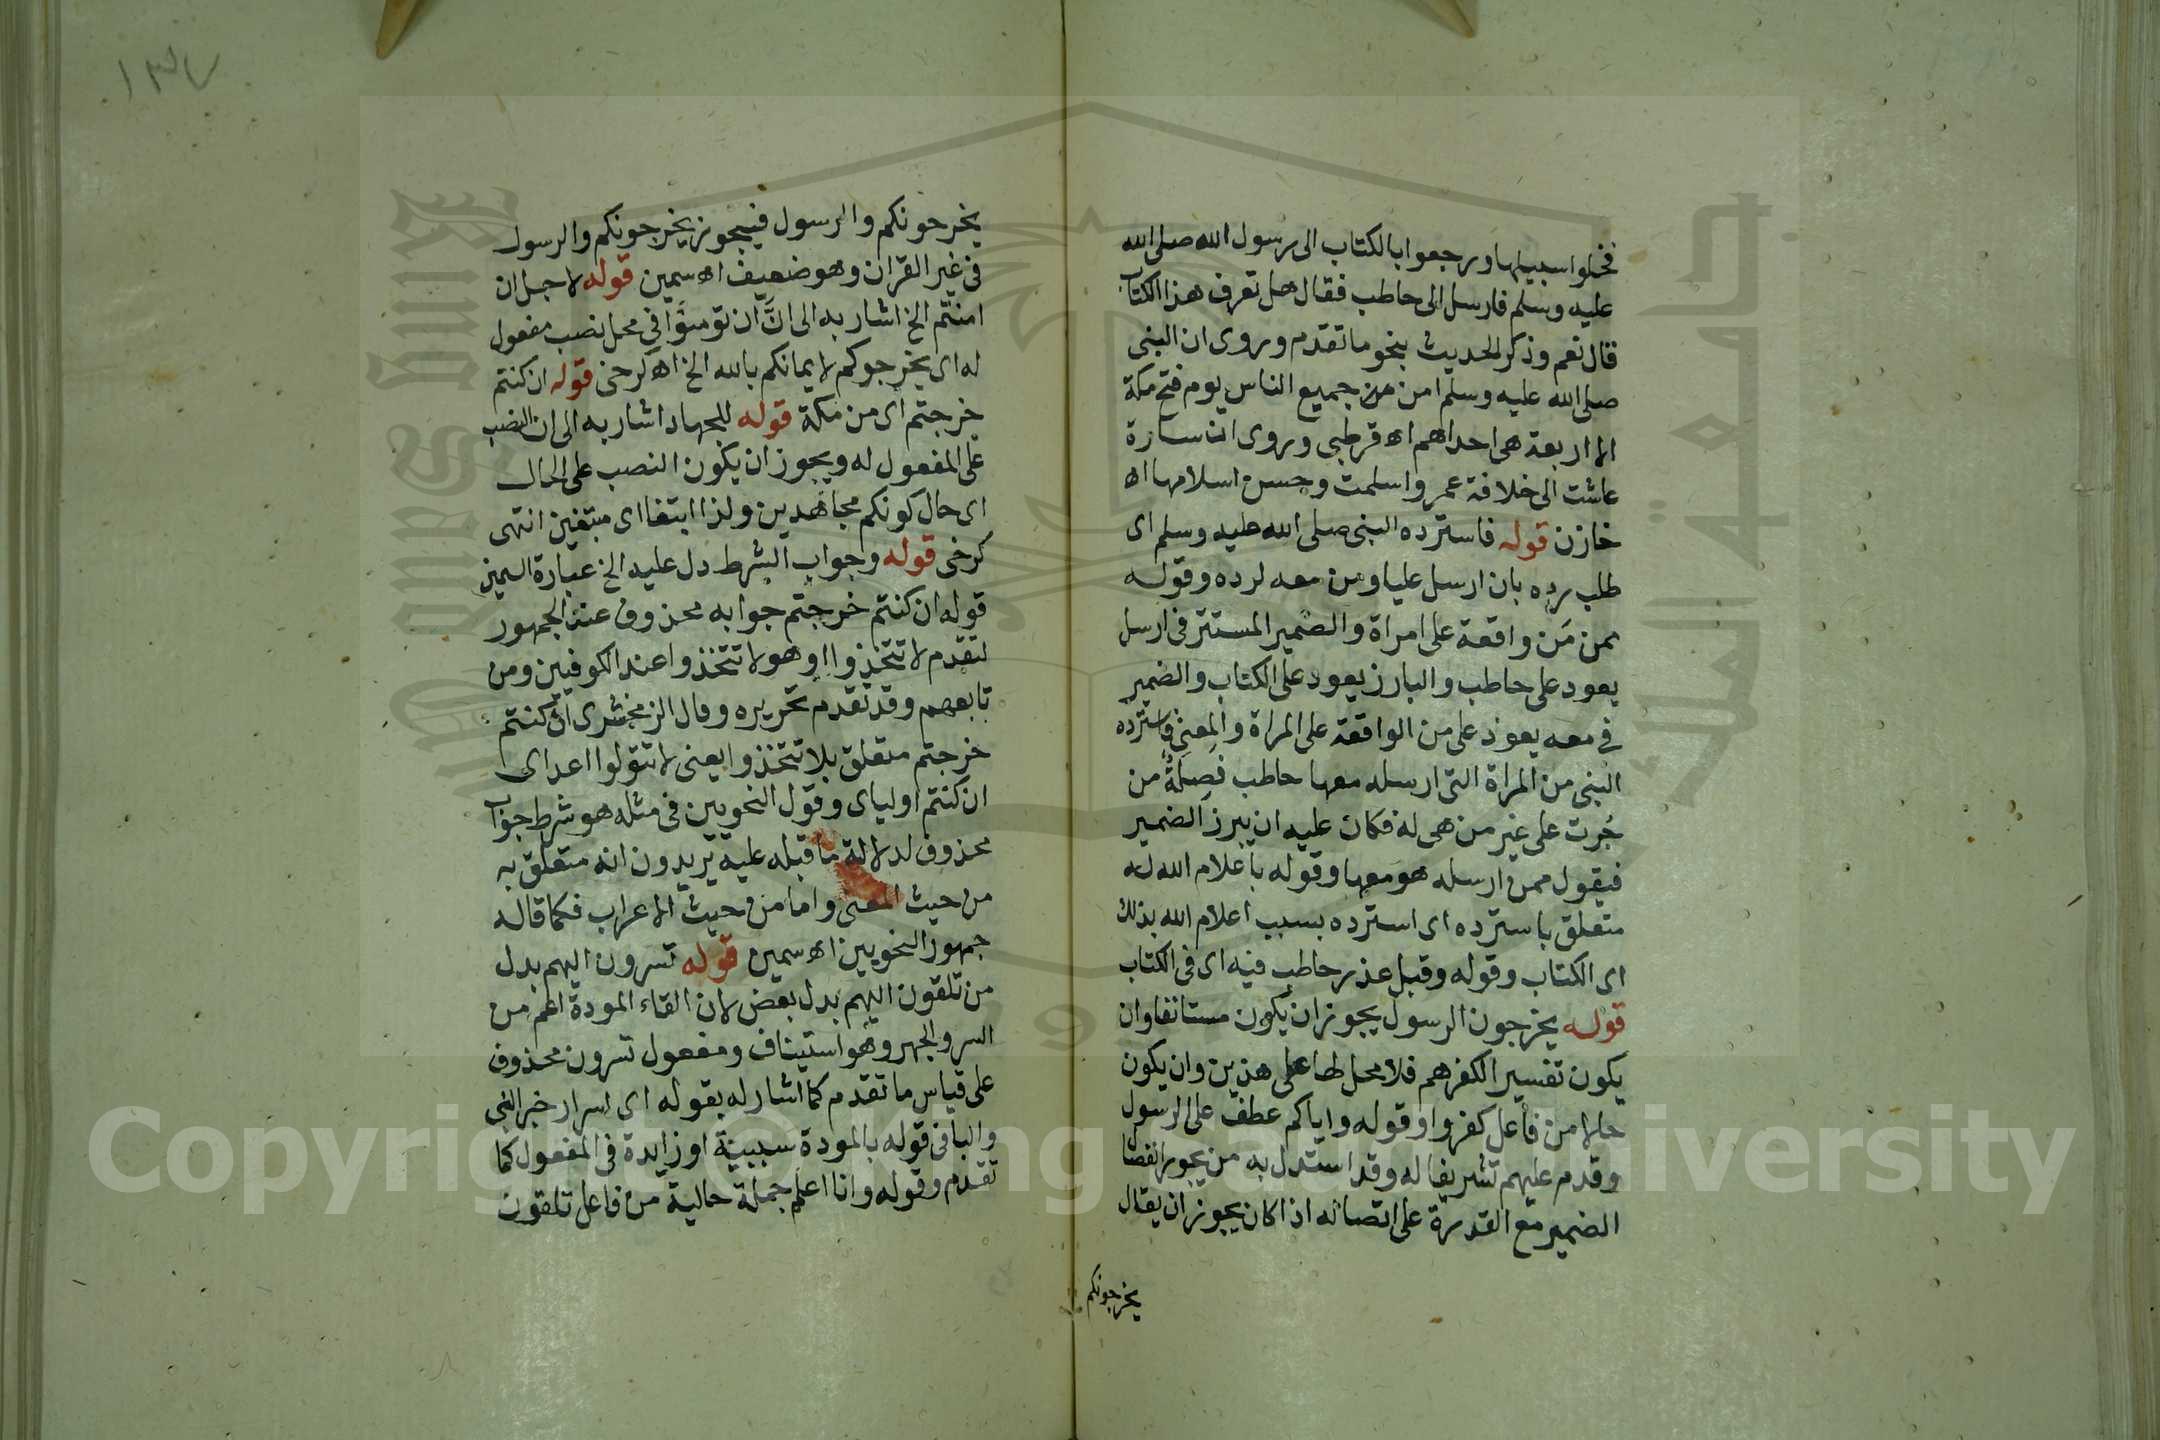 فخلوا سبيلها ورجعوا بالكتاب الى رسول الله صلى الله
عليه وسلم فارسل الى حاطب فقال هل تعرف هذا الكتاب
قال نعم وذكر الحديث بنحو ما تقدم وروى ان النبى
صلى الله عليه وسلم امن من جميع الناس يوم فتح مكة
الا اربعة هى احداهم اه قرطبى وروى ان سارة
عاشت الى خلافة عمر واسلمت وحسن اسلامها اه
خازن قوله فاسترده النبى صلى الله عليه وسلم اى
طلب رده بان ارسل عليا ومن معه لرده وقوله
ممن مَن واقعة على امراة والضمير المستتر فى ارسل
يعود على حاطب والبارز يعود على الكتاب والضمير
في معه يعود على من الواقعة على المراة والمعنى فاسترده
النبى من المراة التى ارسله معها حاطب فصلةُ من
جَرت على غير من هى له فكان عليه ان يبرز الضمير
فيقول ممن ارسله هو معها وقوله باعلام الله له
متعلق باسترده اى استرده بسبب اعلام الله بذلك
اى الكتاب وقوله وقبل عذر حاطب فيه اى فى الكتاب
قوله يخرجون الرسول يجوز ان يكون مستانفا وان
يكون تفسيرا لكفرهم فلا محل لها على هذين وان يكون
حالا من فاعل كفروا وقوله واياكم عطف على الرسول
وقدم عليهم تشريفا له وقد استدل به من يجوز انفصال
الضمير مع القدرة على اتصاله اذا كان يجوز ان يقال
يخرجونكم
١٣٧
يخرجونكم والرسول فيجوز يخرجونكم والرسول
فى غير القران وهو ضعيف اه سمين قوله لاجل ان
امنتم الخ اشار به الى انَّ ان تومنوا فى محل نصب مفعول
له اى يخرجوكم لايمانكم بالله الخ اه كرخى قوله ان كنتم
خرجتم اى من مكة قوله للجهاد اشار به الى ان النصب
على المفعول له ويجوز ان يكون النصب على الحال
اى حال كونكم مجاهدين ولذا ابتغا اى مبتغين انتهى
كرخى قوله وجواب الشرط دل عليه الخ عبارة السمين
قوله ان كنتم خرجتم جوابه محذوف عند الجمهور
لتقدم لا تتخذوا او هو لا تتخذوا عند الكوفيين ومن
تابعهم وقد تقدم تحريره وقال الزمخشرى ان كنتم
خرجتم متعلق بلا تتخذوا يعنى لا تتولوا اعداى
ان كنتم اولياى وقول النحويين فى مثله هو شرط جوابه
محذوف لدلالة ما قبله عليه يريدون انه متعلق به
من حيث المعنى واما من حيث الاعراب فكما قاله
جمهور النحويين اه سمين قوله تسرون اليهم بدل
من تلقون اليهم بدل بعض لان القاء المودة اعم من
السر والجهر وهو استيناف ومفعول تسرون محذوف
على قياس ما تقدم كما اشار له بقوله اى اسرار خبر النبى
والبا فى قوله بالمودة سببية او زايدة فى المفعول كما
تقدم وقوله وانا اعلم جملة حالية من فاعل تلقون